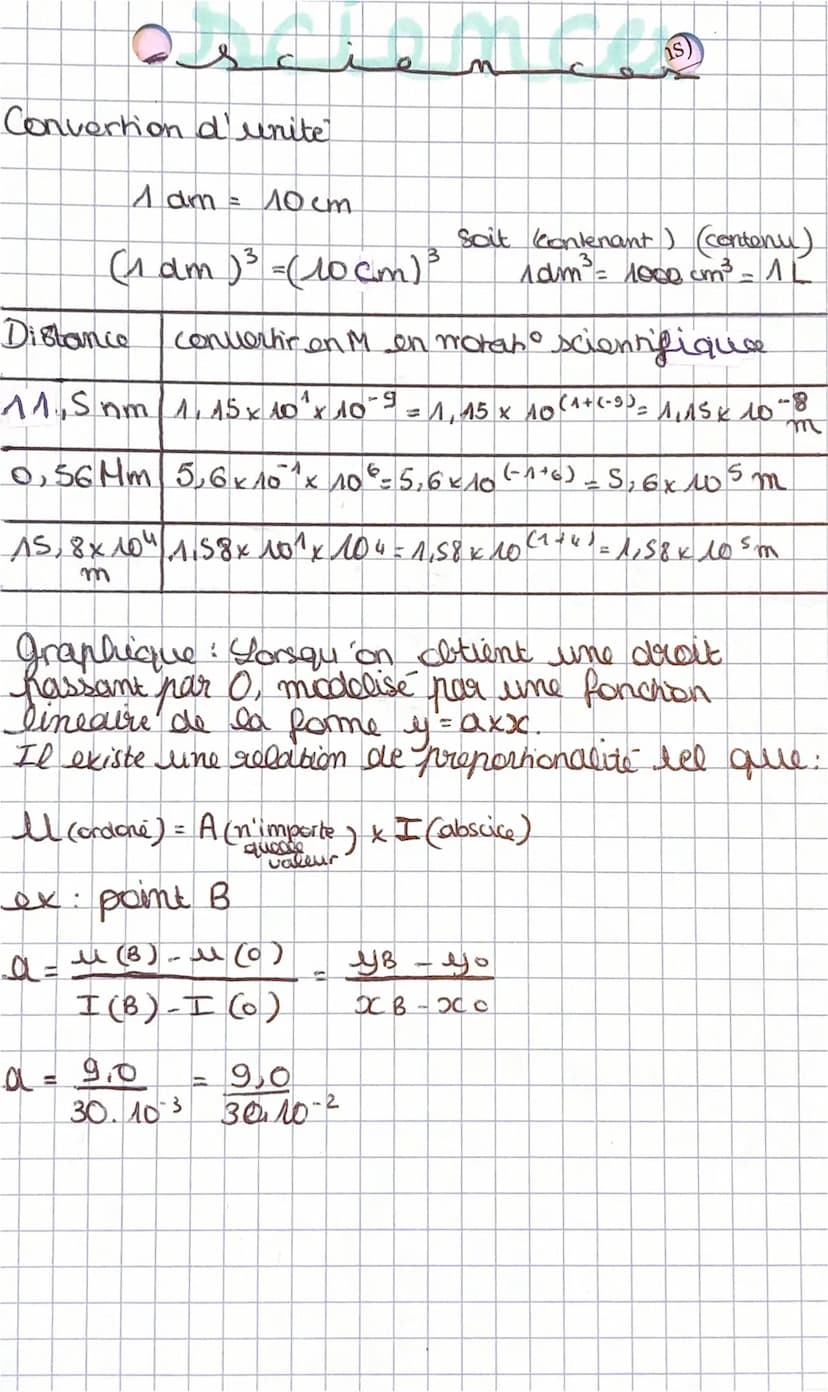 sciences
sciences
15)
Convertion d'unité
1 dm = 10 cm
(1 dm)³ = (10 cm)³ soit (contenant) (contenu)
1dm³ = 1000 cm³ = 1 L
Distance | convertir en M en notat° scientifique
11,5 nm | 1,15 x 10¹ x 10⁻⁹ = 1,15 x 10⁽¹⁺⁽⁻⁹⁾ = 1,15 x 10⁻⁸ m
0,56 Mm | 5,6 x 10⁻¹ x 10⁶ = 5,6 x 10⁽⁻¹⁺⁶⁾ = 5,6 x 10⁵ m
15,8 x 10⁴ m | 1,58 x 10¹ x 10⁴ = 1,58 x 10⁽¹⁺⁴⁾ = 1,58 x 10⁵ m
graphique : Lorsqu'on obtient une droit
passant par O, modelisé par une fonction
lineaire de la forme y = axx.
Il existe une relation de proportionalité tel que :
U (ordoné) = A (n'importe quelle valeur) x I (abscice)
ex : point B
a = u(B) - u(O) / I(B) - I(O) = yB - yo / xB - xo
a = 9,0 / 30.10⁻³ = 9,0 / 30.10⁻²